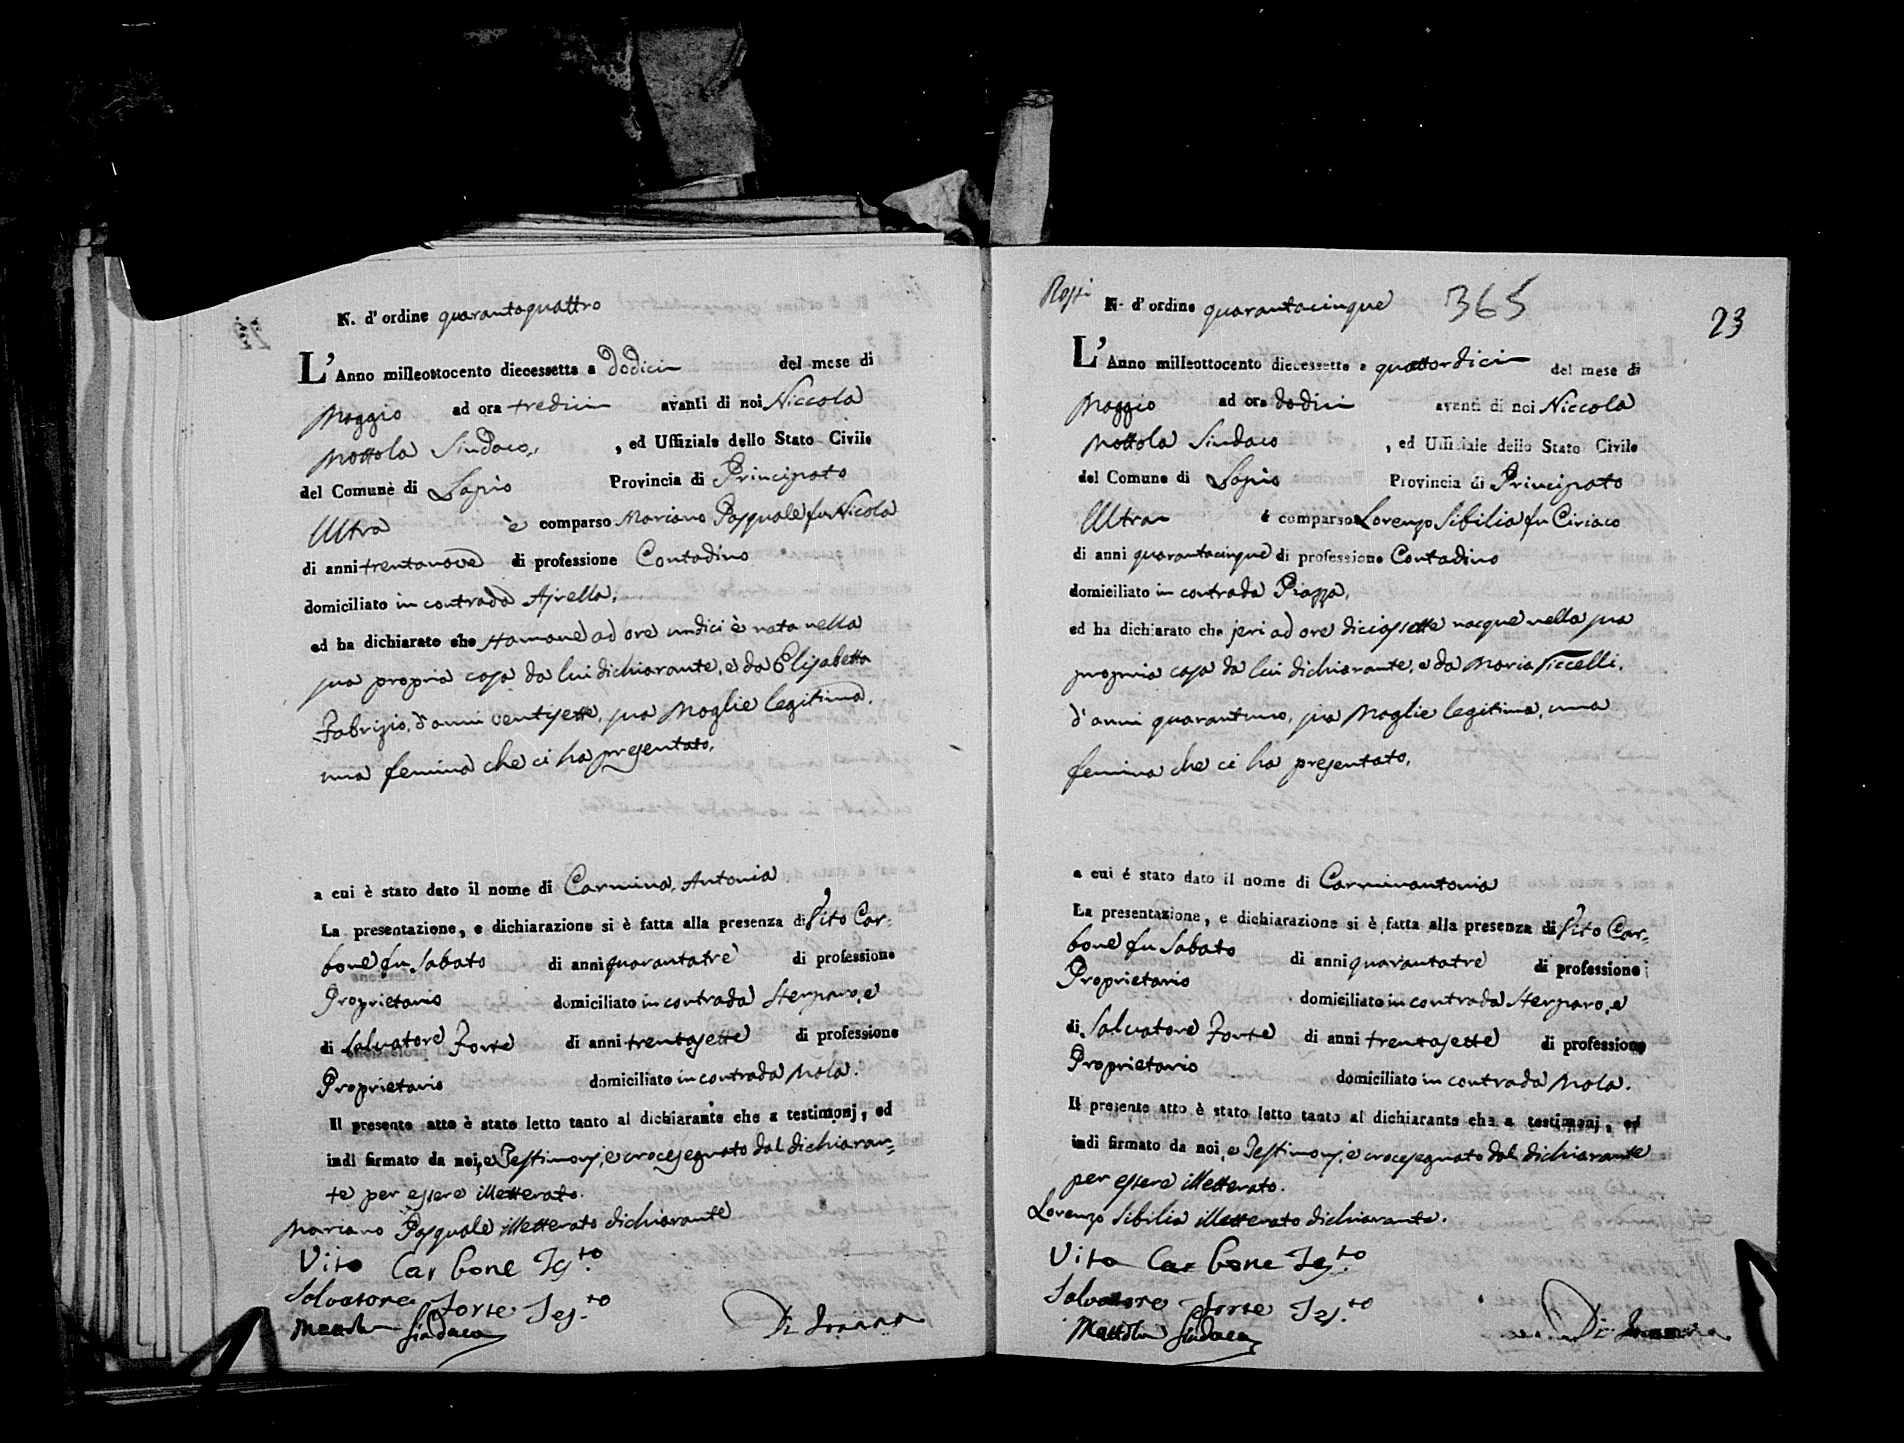 N. d'ordine quarantaquattro
L'Anno milleottocento diecessette a dodici del mese di
Maggio ad ora tredici avanti di noi Niccola
Mottola Sindaco, , ed Uffiziale dello Stato Civile
del Comune di Lapio Provincia di Principato
Ultra è comparso Mariano Pasquale fu Nicola
di anni trentanove di professione Contadino
domiciliato in contrada Airella,
ed ha dichiarato che Stamane ad ore undici è nata nella
sua propria casa da lui dichiarante, e da Elisabetta
Fabrizio, d'anni ventisette, sua Moglie legittima,
una femina che ci ha presentato,
a cui è stato dato il nome di Carmina, Antonia
La presentazione, e dichiarazione si è fatta alla presenza di Vito Car=
bone fu Sabato di anni quarantatre di professione
Proprietario domiciliato in contrada Sterparo, e
di Salvatore Forte di anni trentasette di professione
Proprietario domiciliato in contrada Mola.
Il presente atto è stato letto tanto al dichiarante che a testimonj, ed
indi firmato da noi, e Testimonj, e crocesegnato dal dichiaran=
te per essere illetterato.
Mariano Pasquale illetterato dichiarante
Vito Carbone Tes.to
Salvatore Forte Tes.to
Mottola Sindaco
N. d'ordine quarantacinque 365
23
L'Anno milleottocento diecessette a quattordici del mese di
Maggio ad ora dodici avanti di noi Niccola
Mottola Sindaco , ed Uffiziale dello Stato Civile
del Comune di Lapio Provincia di Principato
Ultra è comparso Lorenzo Sibilia fu Ciriaco
di anni quarantacinque di professione Contadino
domiciliato in contrada Piazza,
ed ha dichiarato che jeri ad ore diciassette nacque nella sua
propria casa da lui dichiarante, e da Maria
d'anni quarantuno, sua Moglie legitima, una
femina che ci ha presentato,
a cui é stato dato il nome di Carminantonia
La presentazione, e dichiarazione si è fatta alla presenza di Vito Car=
bone fu Sabato di anni quarantatre di professione
Proprietario domiciliato in contrada Sterparo, e
di Salvatore Forte di anni trentasette di professione
Proprietario domiciliato in contrada Mola.
Il presente atto è stato letto tanto al dichiarante che a testimonj, ed
indi firmato da noi, e Testimonj, e crocesegnato dal dichiarante
per essere illetterato.
Lorenzo Sibilia illetterato dichiarante.
Vito Carbone Tes.to
Salvatore Forte Tes.to
Mottola Sindaco